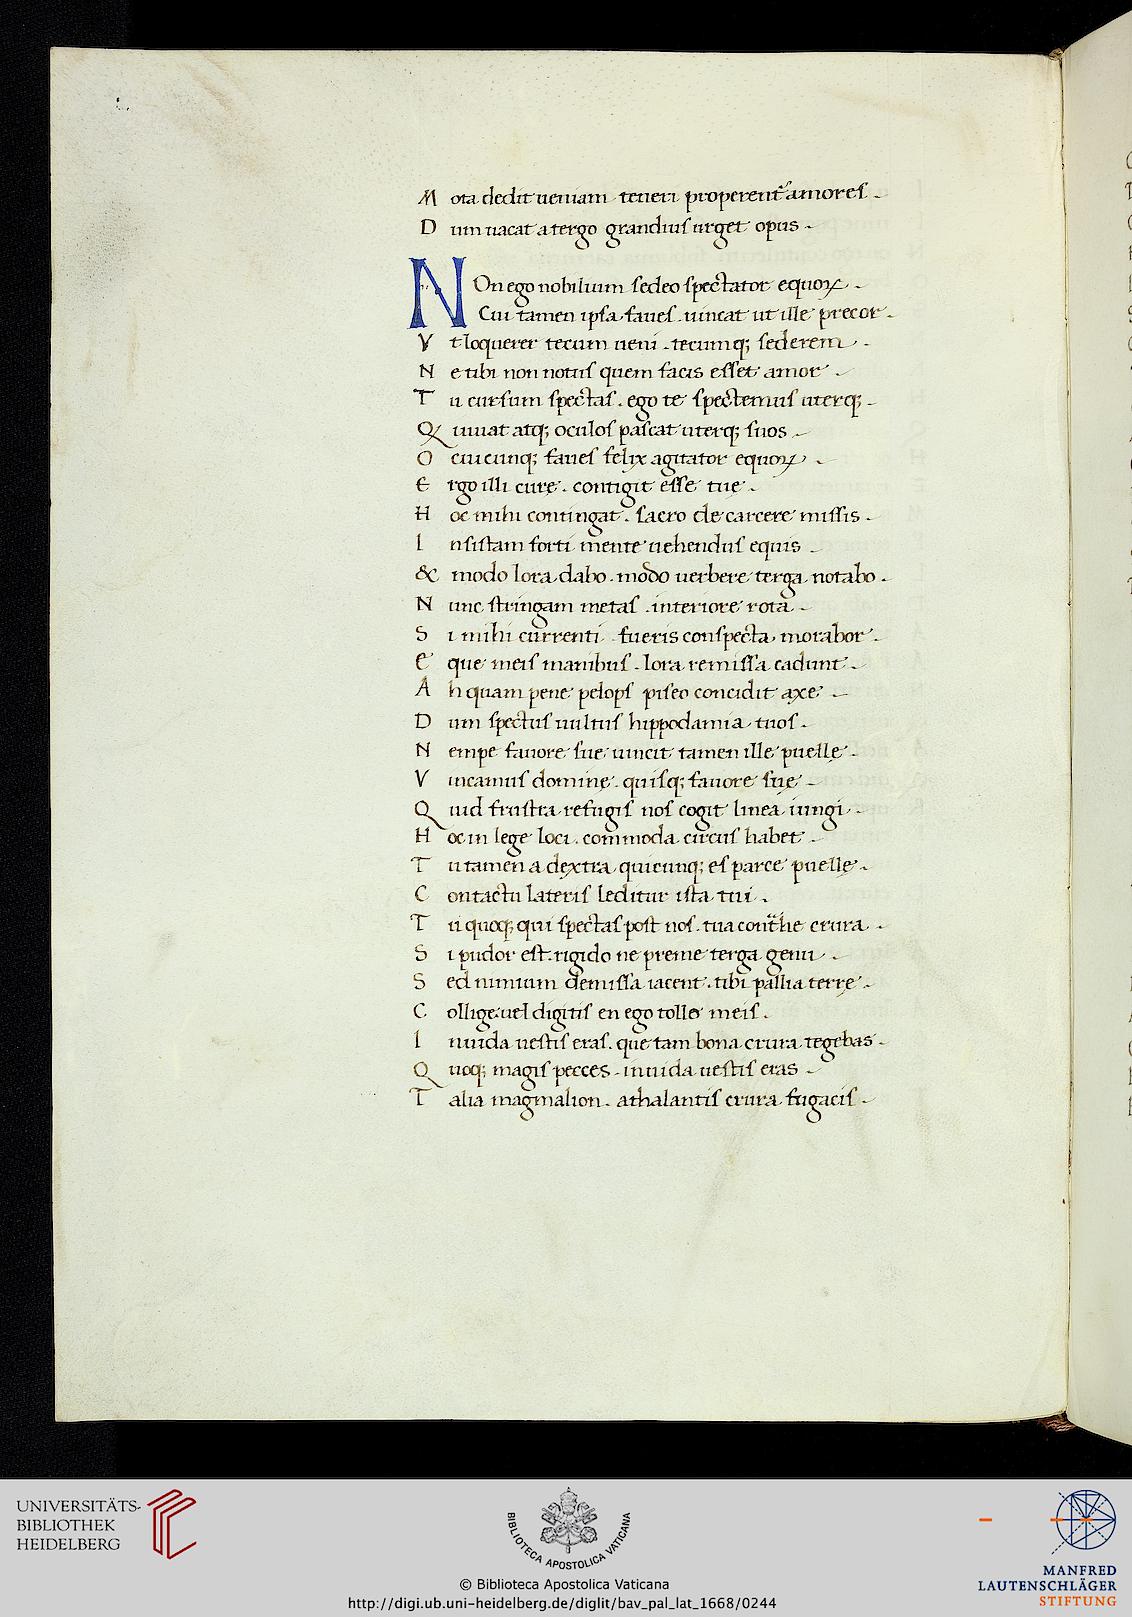 M ota dedit ueniam teneri properent᷑ amores
D um uacat a tergo grandius urget opus
NOn ego nobilium sedeo spectator equoꝝ
Cui tamen ipsa faues . uincat ut ille precor
V t loquerer tecum ueni . tecumq; sederem
N e tibi non notus quem facis esset amor
T u cursum spectas . ego te spectemus uterq;
Q uiuat atq; oculos pascat uterq; suos
O cuicunq; faues felix agitator equoꝝ
E rgo illi curę . contigit esse tuę
H oc mihi contingat . sacro de carcere missis
I nsistam forti mente uehendus equis
& modo lora dabo . modo uerbere terga notabo
N unc stringam metas . interiore rota
S i mihi currenti fueris conspecta morabor
E que meis manibus . lora remissa cadunt
A h quam pene pelops piseo concidit axe
D um spectus uultus hippodamia tuos
N empe fauore sue uincit tamen ille puellę
V incamus dominę . quisq; fauore suę
Q uid frustra refugis nos cogit linea iungi
H oc in lege loci . commoda circus habet
T u tamen a dextra quicunq; es parce puellę
C ontactu lateris leditur ista tui
T u quoq; qui spectas post nos . tua cont᷑he crura
S i pudor est . rigido ne preme terga genu
S ed nimium demissa iacent . tibi pallia terrę
C ollige uel digitis en ego tollo meis
I nuida uestis eras . que tam bona crura tegebas
Q uoq; magis pecces . inuida uestis eras
T alia magmalion . athalantis crura fugacis
UNIVERSITÄTS-
BIBLIOTHEK
HEIDELBERG
BIBLIOTECA APOSTOLICA VATICANA
MANFRED
LAUTENSCHLÄGER
STIFTUNG
© Biblioteca Apostolica Vaticana
http://digi.ub.uni-heidelberg.de/diglit/bav_pal_lat_1668/0244